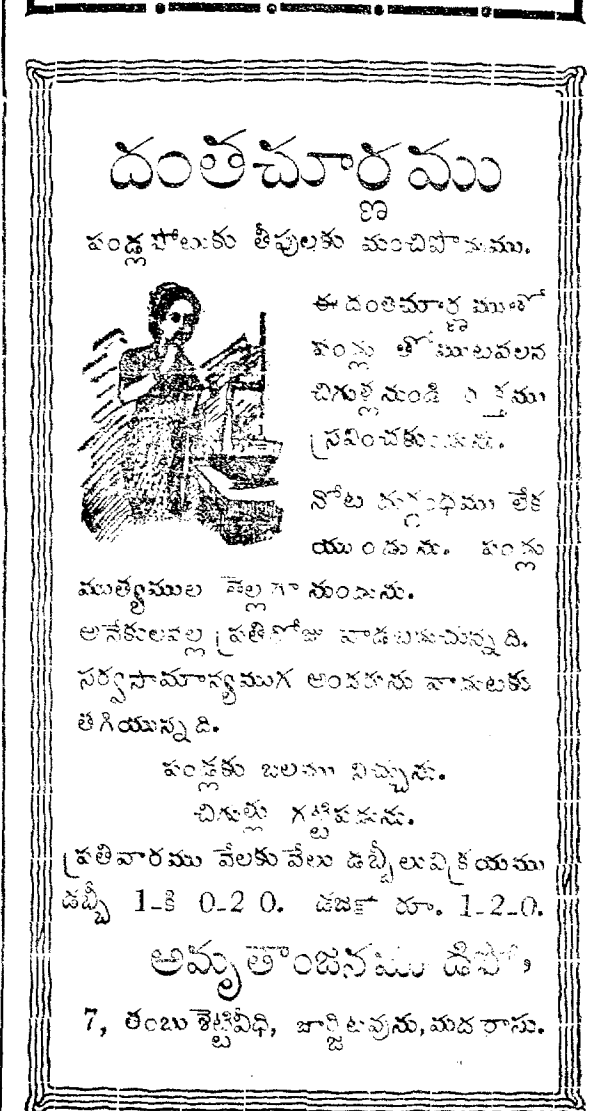 దంతచూర్ణము
పండ్లపోటుకు తీపులకు మంచిపొడుము.
ఈ దంతచూర్ణముతో
పండ్లు తోముటవలన
చిగుళ్లనుండి రక్తము
స్రవించకుండును.
నోట దుర్గంధము లేక
యుండును. పండ్లు
ముత్యముల వెల్లగా నుండును.
అనేకులవల్ల ప్రతిరోజు వాడబడుచున్నది.
సర్వసామాన్యముగ అందరును వాడుటకు
తగియున్నది.
పండ్లకు బలము నిచ్చును.
చిగుల్లు గట్టిపడును.
ప్రతివారము వేలకు వేలు డబ్బీలువిక్రయము
డబ్బీ 1-కి 0-2 0. డజకా రూ. 1-2-0.
అమృతాంజనము డిపో,
7, తంబుశెట్టివీధి, జార్జిటవును, మదరాసు.